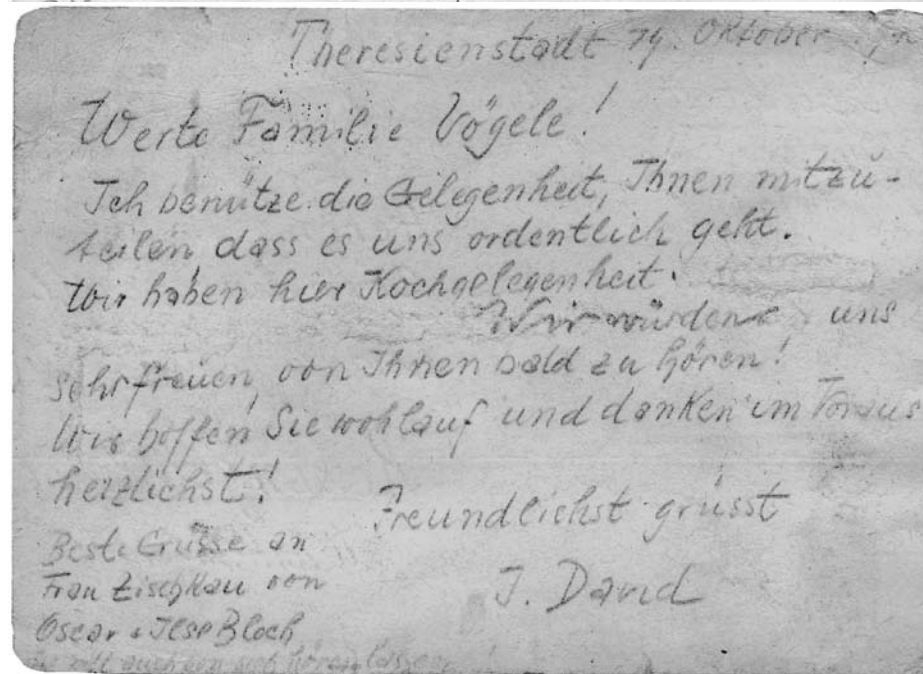 Theresienstadt 19. Oktober
Werte Familie Vögele!
Ich benütze die Gelegenheit, Ihnen mitzu-
teilen dass es uns ordentlich geht.
Wir haben hier Kochgelegenheit.
Wir würden uns
sehr freuen, von Ihnen bald zu hören!
Wir hoffen Sie wohlauf und danken im Voraus
herzlichst!
Freundlichst grüsst
J. David
Beste Grüsse an
Frau Zischkau von
Oscar + Ilse Bloch
auch von sich hören lassen